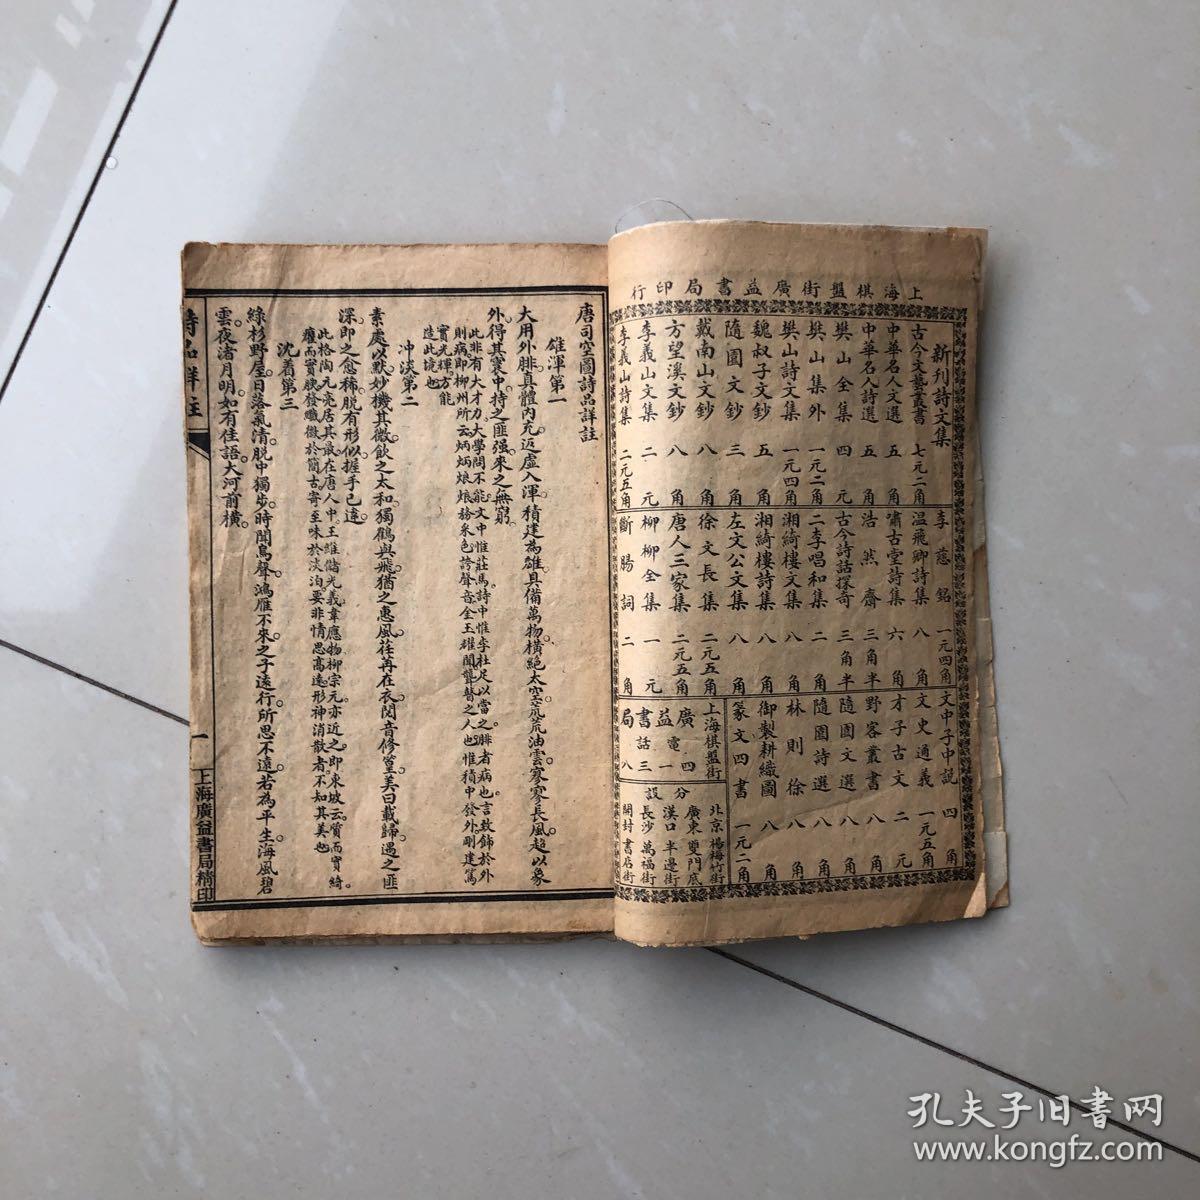 上海棋盤街廣益書局印行
新刊詩文集
古今文藝叢書 七元二角
中華名人文選 五角
中華名人詩選 五角
樊山全集 四元
樊山集外 一元二角
樊山詩文集 一元四角
魏叔子文鈔 五角
隨園文鈔 三角
戴南山文鈔 八角
方望溪文鈔 八角
李義山文集 二元
李義山詩集 二元五角
李慈銘 一元四角
溫飛卿詩集 八角
嘯古堂詩集 六角
浩然齋 三角半
古今詩話探奇 三角半
二李唱和集 二角
湘綺樓文集 八角
湘綺樓詩集 八角
左文公文集 八角
徐文長集 二元五角
唐人三家集 二元五角
柳柳全集 一元
斷腸詞 二角
文中子中說 四角
文史通義 一元五角
才子古文 二元
野客叢書 八角
隨園文選 八角
隨園詩選 四角
林則徐 八角
御製耕織圖 八角
篆文四書 一元二角
上海棋盤街
廣益書局
電話一三四八
分設
北京楊梅竹街
廣東雙門底
漢口半邊街
長沙萬福街
開封書店街
唐司空圖詩品詳註
雄渾第一
大用外腓。真體內充。返虛入渾。積健為雄。具備萬物。橫絕太空。荒荒油雲。寥寥長風。超以象
外。得其寰中。持之匪强。來之無窮。
此非有大才力大學問不能。文中惟莊馬。詩中惟李杜足以當之。腓者病也。言教飾於外
則病。即柳州所云炳炳烺烺。務采色。誇聲音。全玉耀聞聾瞽之人也。惟積中發外。剛建篤
實光輝。方能
造此境也
冲淡第二
素處以默。妙機其微。飲之太和。獨鶴與飛。猶之惠風。荏苒在衣。閱音修篁。美曰載歸。遇之匪
深。即之愈稀。脫有形似。握手已違。
此格陶元亮居其最。在唐人中。王維儲光義韋應物柳宗元亦近之。即東坡云。質而實綺。
癯而實腴。發纖穠於簡古。寄至味於淡泊。要非情思高遠。形神消散者。不知其美也
沈着第三
綠杉野屋。日落氣清。脫中獨步。時聞鳥聲。鴻雁不來。之子遠行。所思不遠。若為平生。海風碧
雲。夜渚月明。如有佳語。大河前橫。
詩品詳註
一
上海廣益書局精印
孔夫子旧书网
www.kongfz.com